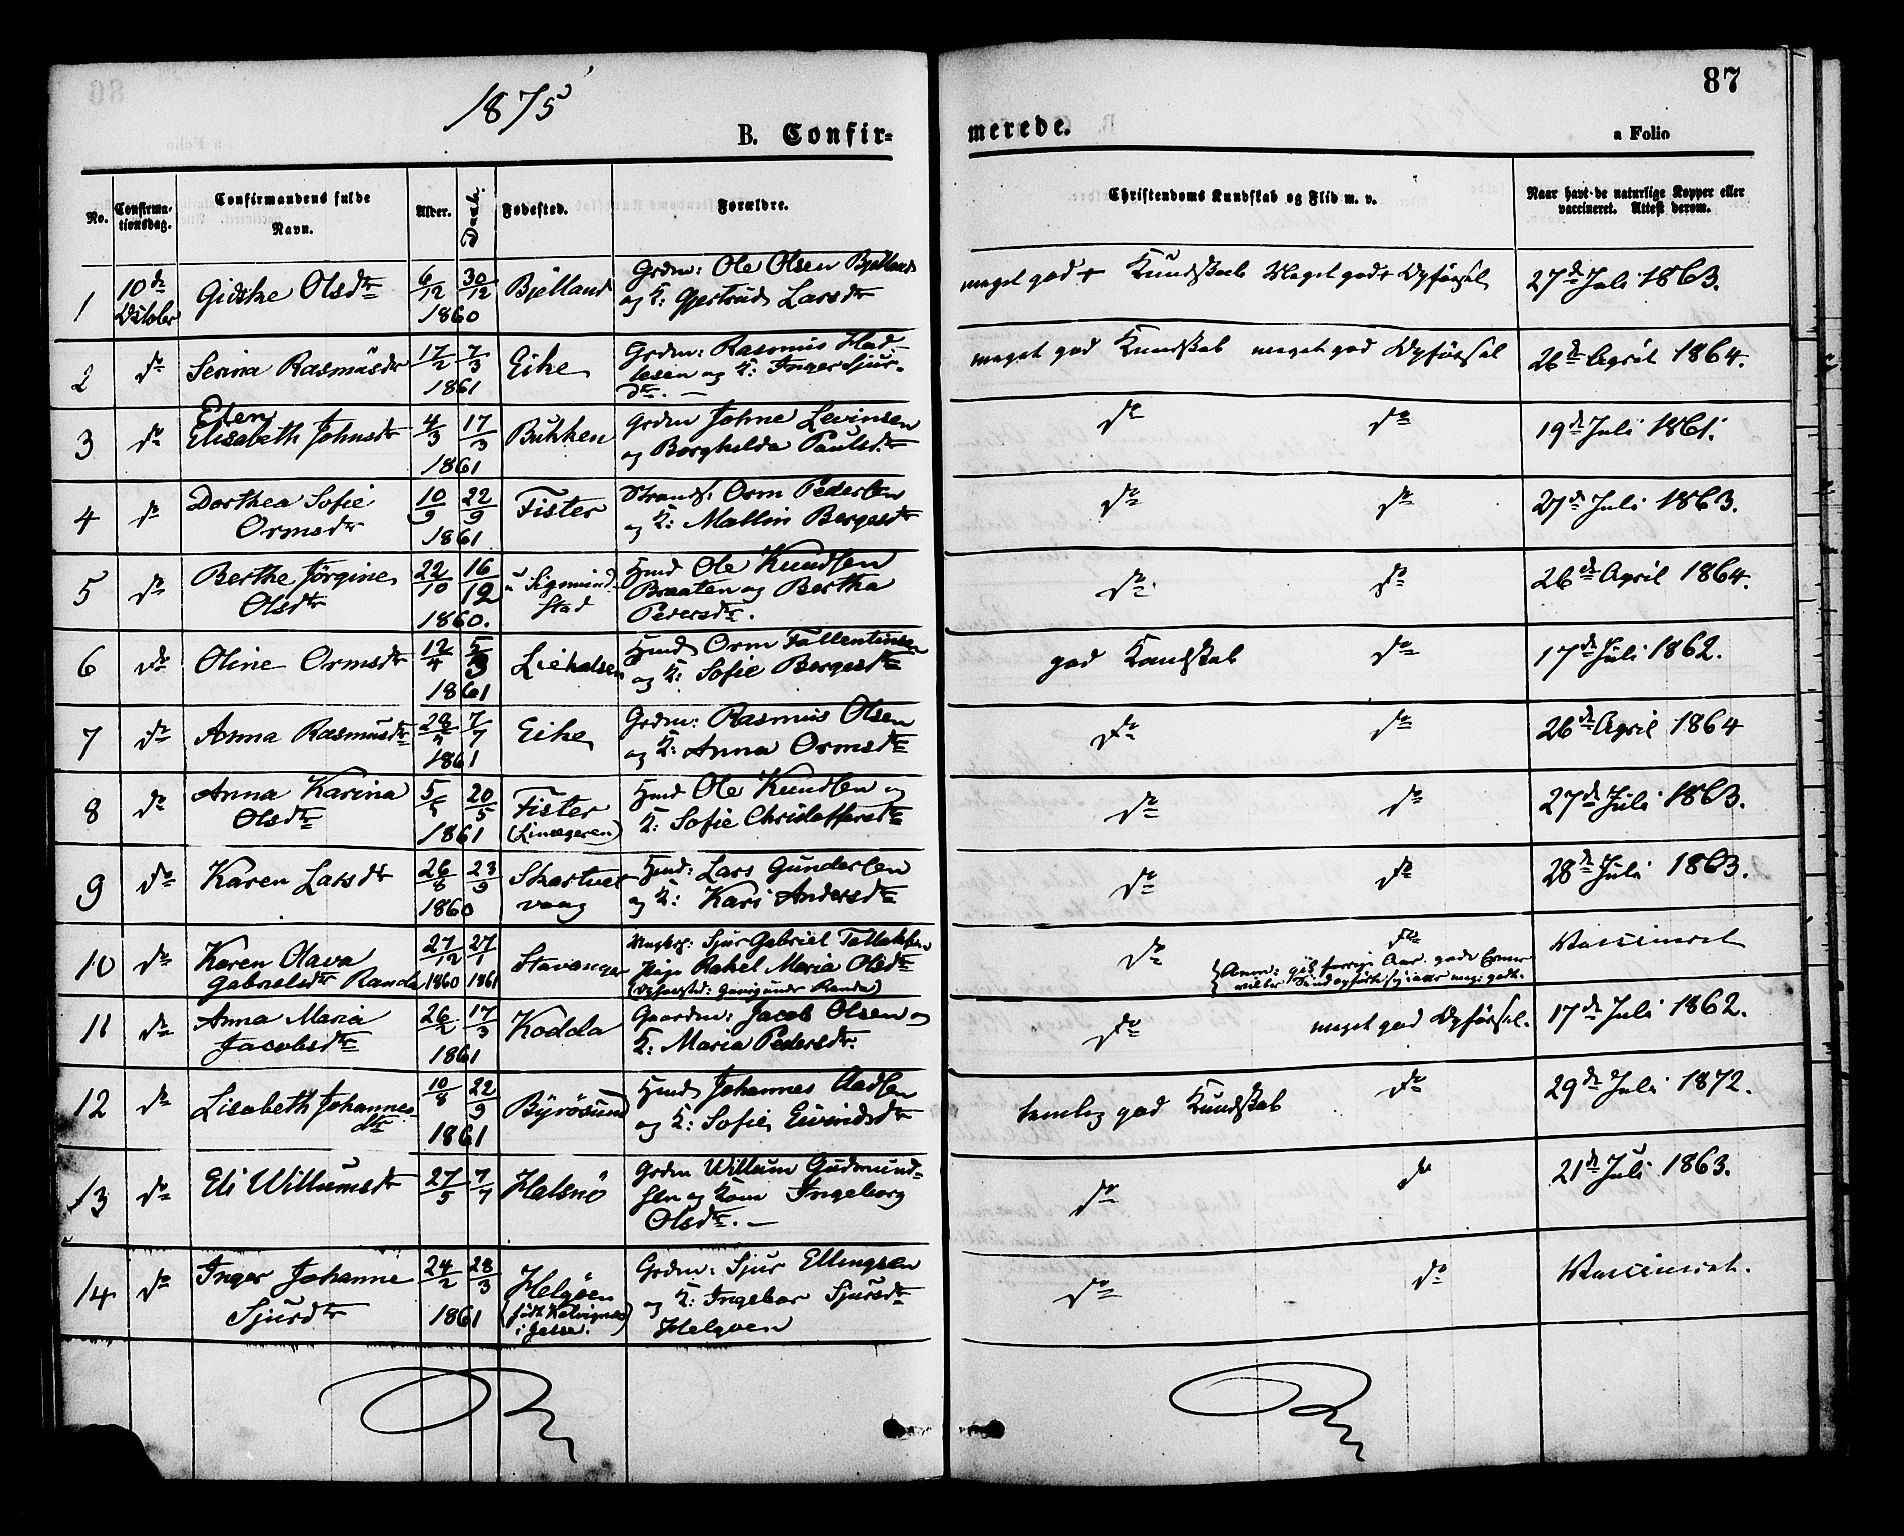 1875
87
B. Confirmerede.
a Folio
No.
Confirmationsdag.
Confirmandens fulde Navn.
Alder.
Daab.
Fødested.
Forældre.
Christendoms Kundskab og Flid m. v.
Naar havt de naturlige Kopper eller vaccineret. Attest derom.
1 10de Oktober Gidske Olsdtr 6/12 30/12 1860 Bjelland Grdm: Ole Olsen Bjelland
og K: Gjertrud Larsdtr meget god Kundskab Meget god Opførsel 27de Juli 1863.
2 do Serina Rasmusdtr 17/2 7/3 1861 Eike Grdm: Rasmus Had-
lesen og K: Inger Sjur-
dtr. — meget god Kundskab meget god Opførsel 26de April 1864.
3 do Elen
Elisabeth Johnsdtr 4/3 17/3 1861 Bukken Grdm Johne Levinsen
og Borghilda Paulsdtr do do 19de Juli 1861.
4 do Dorthea Sofie
Ormsdtr 10/9 22/9 1861 Fister Strands: Orm Pedersen
og K: Mallin Bergesdtr do do 27de Juli 1863.
5 do Berthe Jørgine
Olsdtr 22/10 16/12 1860. u Sigmund-
stad Hmd Ole Knudsen
Braaten og Bertha
Pedersdtr. do. do 26de April 1864.
6 do Oline Ormsdtr 12/4 5/3 1861 Liehalsen Hmd Orm Fallentinsen
og K: Sofie Bergesdtr god Kundskab do 17de Juli 1862.
7 do Anna Rasmusdtr 28/2 7/7 1861 Eike Grdm: Rasmus Olsen
og K: Anna Ormsdtr do do 26de April 1864
8 do Anna Karina
Olsdtr 5/5 20/5 1861 Fister
(Limageren) Hmd Ole Knudsen og
K: Sofie Christoffersdtr do do 27de Juli 1863.
9 do Karen Larsdtr 26/8 23/9 1860 Skartvet
vaag Hmd: Lars Gundersen
og K: Kari Andersdtr do do 28de Juli 1863.
10 do Karen Olava
Gabrielsdtr Randa 27/12 1860 27/1 1861 Stavanger Sjur Gabriel Tollaksen
Pige Rakel Maria Olsdtr
Randa) do do
(Anm: gik forrige Aar Vaccineret
11 do Anna Maria
Jacobsdtr 26/2 17/3 1861 Kodda Gaardm: Jacob Olsen og
K: Maria Pedersdtr. do meget god Opførsel. 17de Juli 1862.
12 do Lisabeth Johannes
dtr 10/8 22/9 1861 Byrøsund Hmd Johannes Aadsen
og K: Sofie Eivindsdtr temlig god Kundskab do 29de Juli 1872.
13 do Eli Willumsdtr 27/5 7/7 Halsnø Grdm Willum Gudmund-
sen og Kone Ingeborg
Olsdtr. — do do 21de Juli 1863.
14 do Inger Johanne
Sjurdtr 24/2 28/3 1861 Helgøen
(født
i Jelse. Grdm: Sjur Ellingsen
og K: Ingebor Sjursdtr
Helgøen do do Vaccineret.